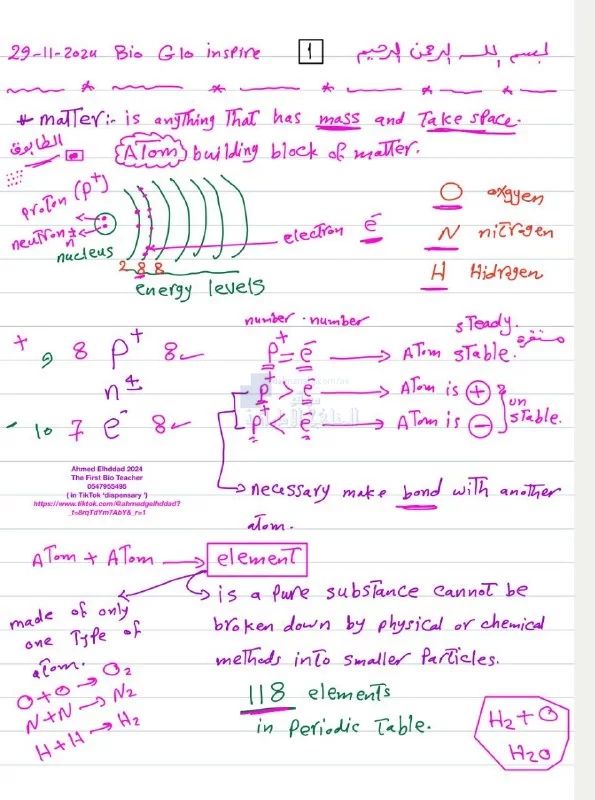 29-11-2024 Bio G10 inspire 1 بسم الله الرحمن الرحيم
* matter:- is anything That has mass and Take space.
الطابوقة ATom building block of matter.
proton (p+)
neutron ± n
nucleus
electron e-
2 8 8
energy levels
O oxgyen
N nitragen
H Hidragen
number . number
steady.
+ 9 8 p+ 8 ✓ p+ = e- → ATom sTable. مستقرة
n± p+ > e- → ATom is +
- 10 7 e- 8 ✓ p+ < e- → ATom is -
un sTable.
Ahmed Elhddad 2024
The First Bio Teacher
0547955495
( in TikTok 'dispensary ')
necessary make bond with another
atom.
ATom + ATom → element
made of only
one Type of
atom.
O + O → O2
N + N → N2
H + H → H2
is a pure substance cannot be
broken down by physical or chemical
methods into smaller Particles.
118 elements
in Periodic Table.
H2 + O
H2O